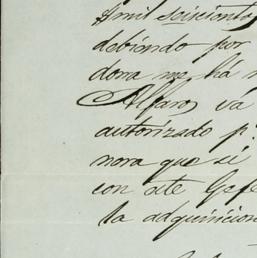 &mil seiscientos
debiendo por
dora me há
Alfaro, vá
autorizado p.
nora que si
con ate Gefe
la adquisicion